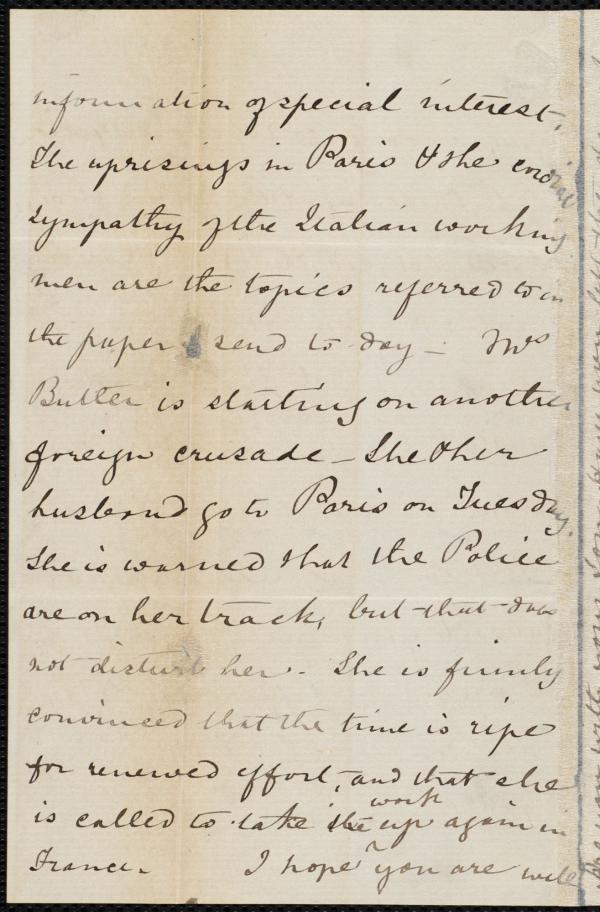 information of special interest.
The uprisings in Paris & the cordial
sympathy of the Italian working
men are the topics referred to in
the paper I send to day — Mrs
Butler is starting on another
foreign crusade — She & her
husband go to Paris on Tuesday.
She is warned that the Police
are on her track, but that does
not disturb her. She is firmly
convinced that the time is ripe
for renewed effort, and that she
is called to take the work up again in
France. I hope you are well